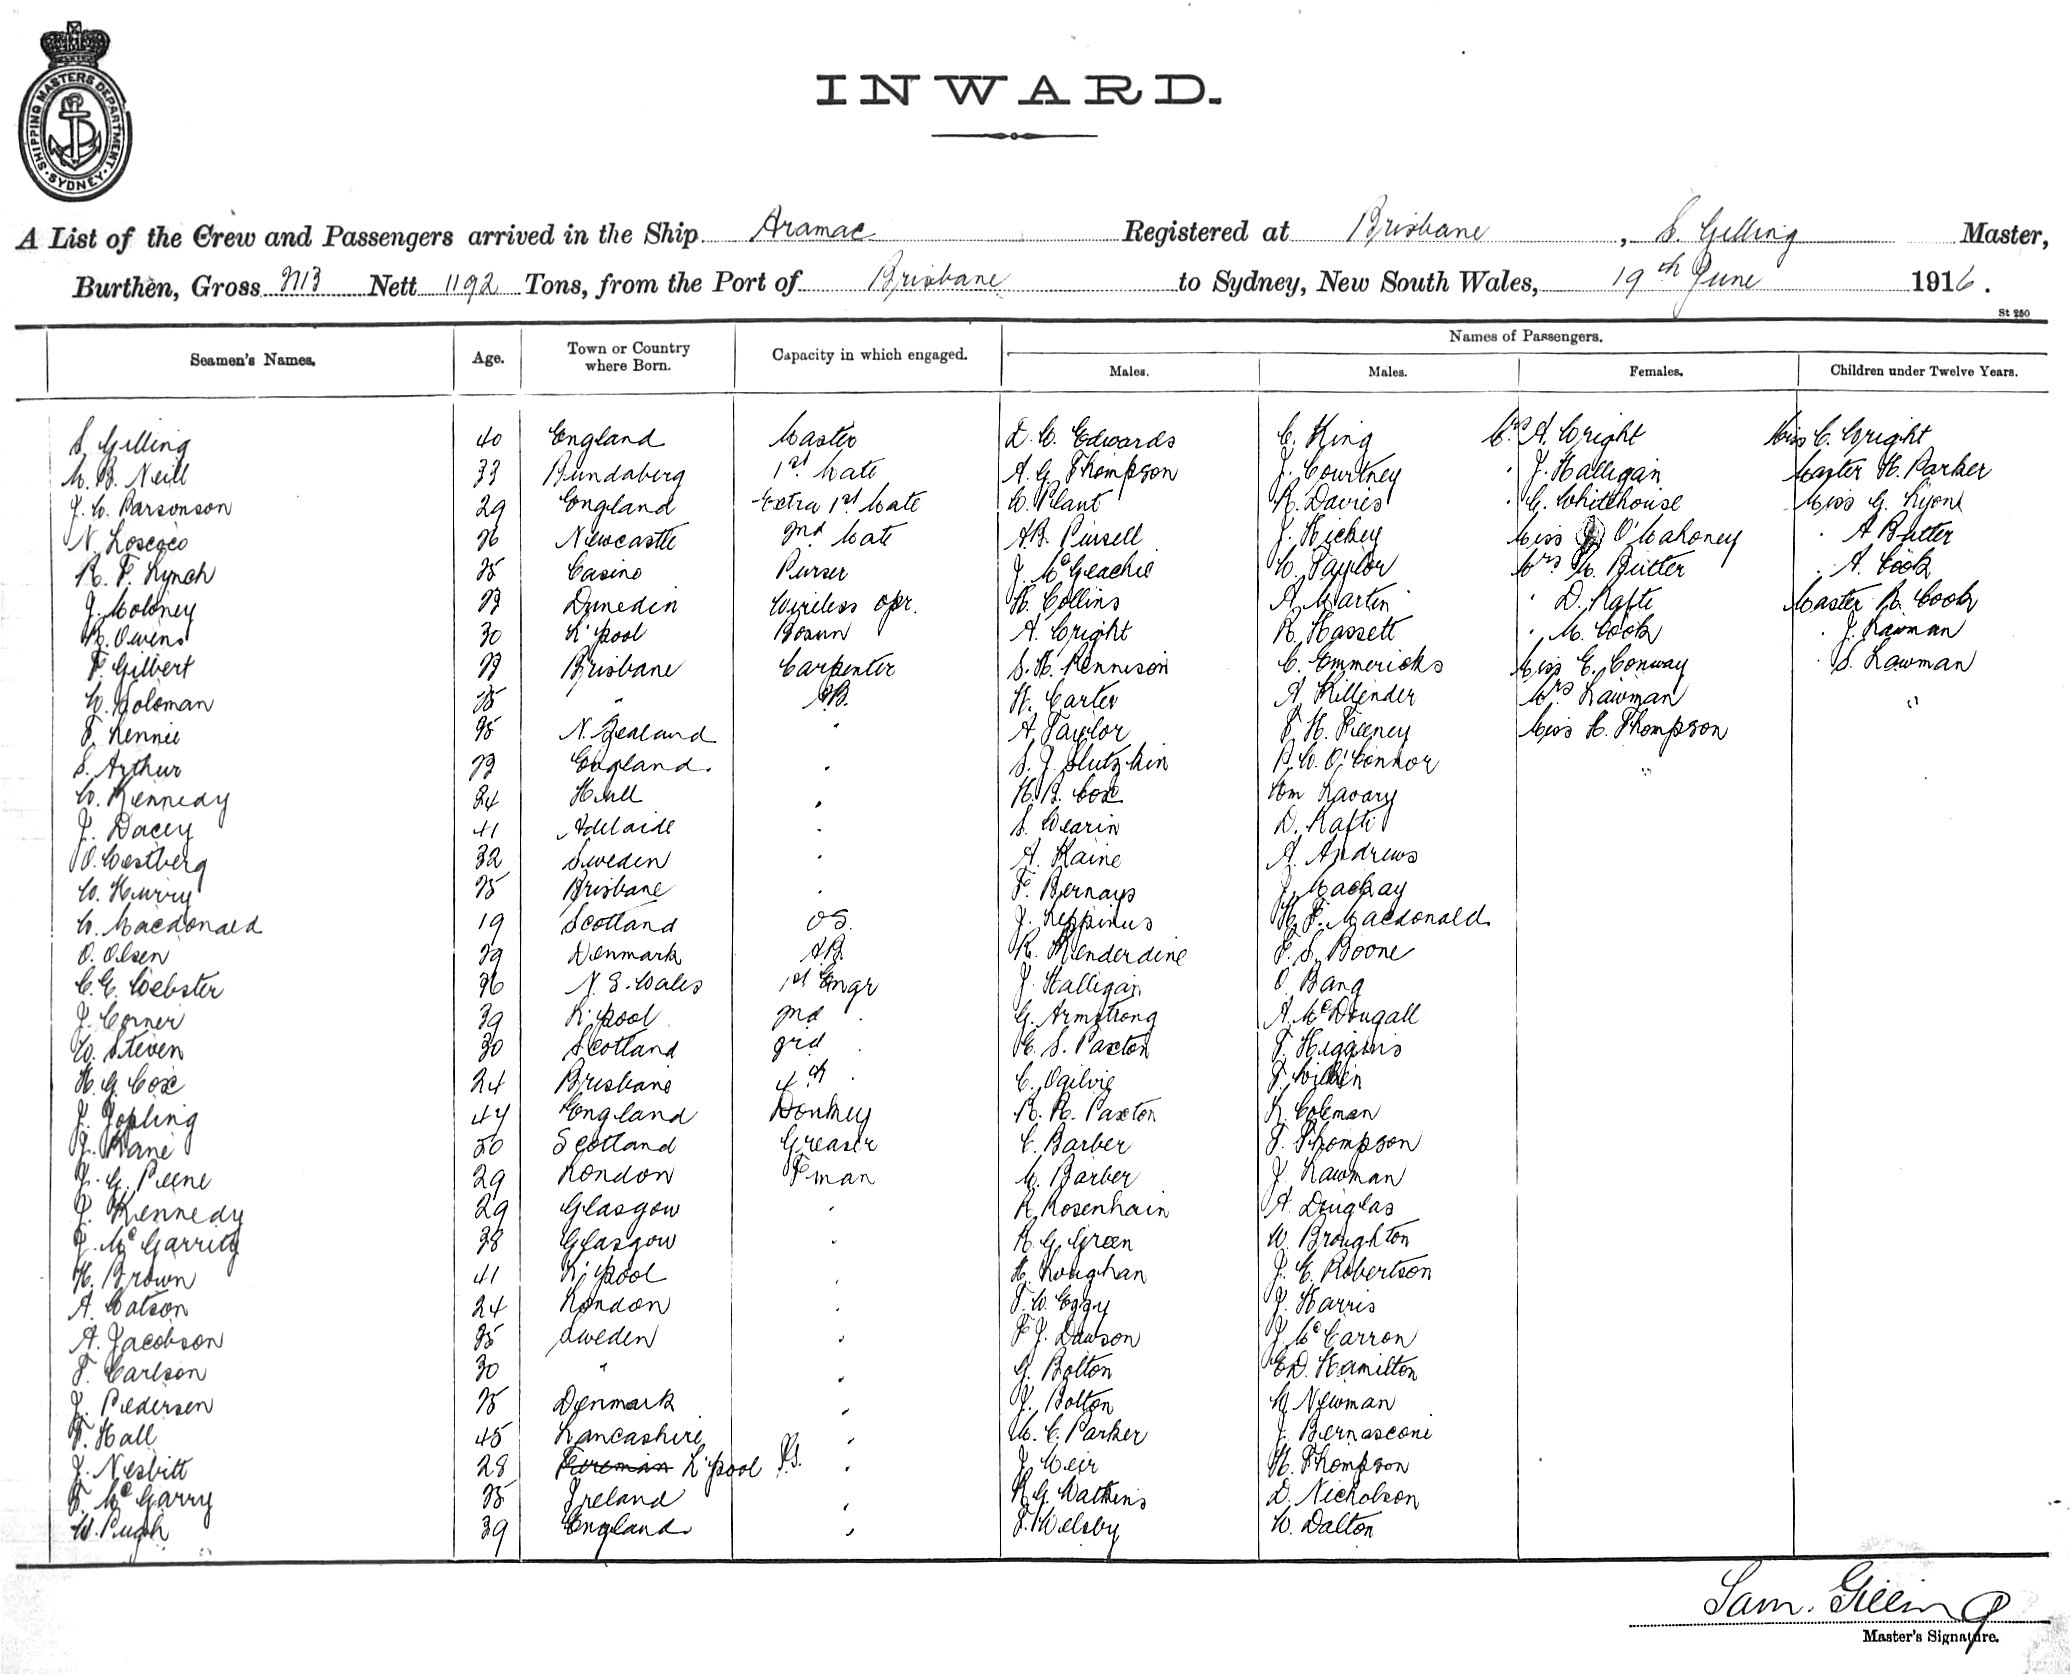 SHIPPING MASTERS DEPARTMENT. SYDNEY.
INWARD.
A List of the Crew and Passengers arrived in the Ship Aramac Registered at Brisbane, S. Gilling Master,
Burthen, Gross Nett 1192 Tons, from the Port of Brisbane to Sydney, New South Wales, 19th June 1916.
St 250
Names of Passengers.
Seamen's Names. Age. Town or Country where Born. Capacity in which engaged. Males. Males. Females. Children under Twelve Years.
S. Gilling 40 England Master D. W. Edwards C. King Mrs A. Wright Miss C. Wright
M. B. Neill 33 Bundaberg 1st Mate A. G. Thompson J. Courtney " J. Halligan Master H. Parker
J. W. Parsonson 29 England Extra 1st Mate W. Plant R. Davies " C. Whitehouse Miss G. Lyons
N. Loscoco 26 Newcastle 2nd Mate A. B. Pursell J. Hickey Miss O'Mahoney " A Butter
R. F. Lynch 25 Casino Purser J. McGeachie W. Taylor Mrs M. Butter " A. Cook
J. Moloney 23 Dunedin Wireless opr. H. Collins A Martin " D. Rafti Master R. Cook
R. Owens 30 L'pool Bosun A. Wright R. Hassett " M. Cook " J. Lawman
F. Gilbert 23 Brisbane Carpenter S. H. Rennison C. Emmericks Miss E. Conway " S. Lawman
W. Holoman 25 " AB. H. Carter A Killender Mrs Lawman "
F. Rennie 25 N. Zealand " A Taylor F. H. Feeney Miss H. Thompson
S. Arthur 23 England " S. J. Slutzkin P. W. O'Connor "
W. Kennedy 24 Hull " H. B. Cox Wm Lavary
J. Dacey 41 Adelaide " S. Wearin D. Rafti
O. Westberg 32 Sweden " A. Raine A. Andrews
W. Hurry 25 Brisbane " F. Bernays J. Mackay
W. Macdonald 19 Scotland OS. J. Leppinus H. F. Macdonald
O. Olsen 29 Denmark AB. R. Henderdine F. S. Boone
C. E. Webster 36 N. S. Wales 1st Engr J. Halligan O. Bang
J. Corner 39 L'pool 2nd " G. Armstrong A. McDougall
W. Steven 30 Scotland 3rd " E. S. Paxton F. Higgins
H. G. Cox 24 Brisbane 4th " C. Ogilvie
J. Jopling 47 England Donkey R. R. Paxton R. Coleman
J. Kane 50 Scotland Greaser C. Barber F. Thompson
J. G. Peene 29 London F'man M. Barber J. Lawman
J. Kennedy 29 Glasgow " R. Rosenhain A. Douglas
J. McGarrity 38 Glasgow " R. G. Green W. Broughton
H. Brown 41 L'pool " H. Loughan J. E. Robertson
A. Watson 24 London " F. W. Eggy J. Harris
A. Jacobson 25 Sweden " F. J. Dawson J. McCarron
F. Carlson 30 " " G. Bolton E. D. Hamilton
J. Pedersen 25 Denmark " J. Bolton M. Newman
F. Hall 45 Lancashire " M. C. Parker J. Bernasconi
J. Nesbitt 28 Fireman L'pool " J. Weir H. Thompson
F. McGarry 25 Ireland " R. G. Watkins D. Nicholson
W. Pugh 39 England " F. Welsby W. Dalton
Sam. Gilling
Master's Signature.